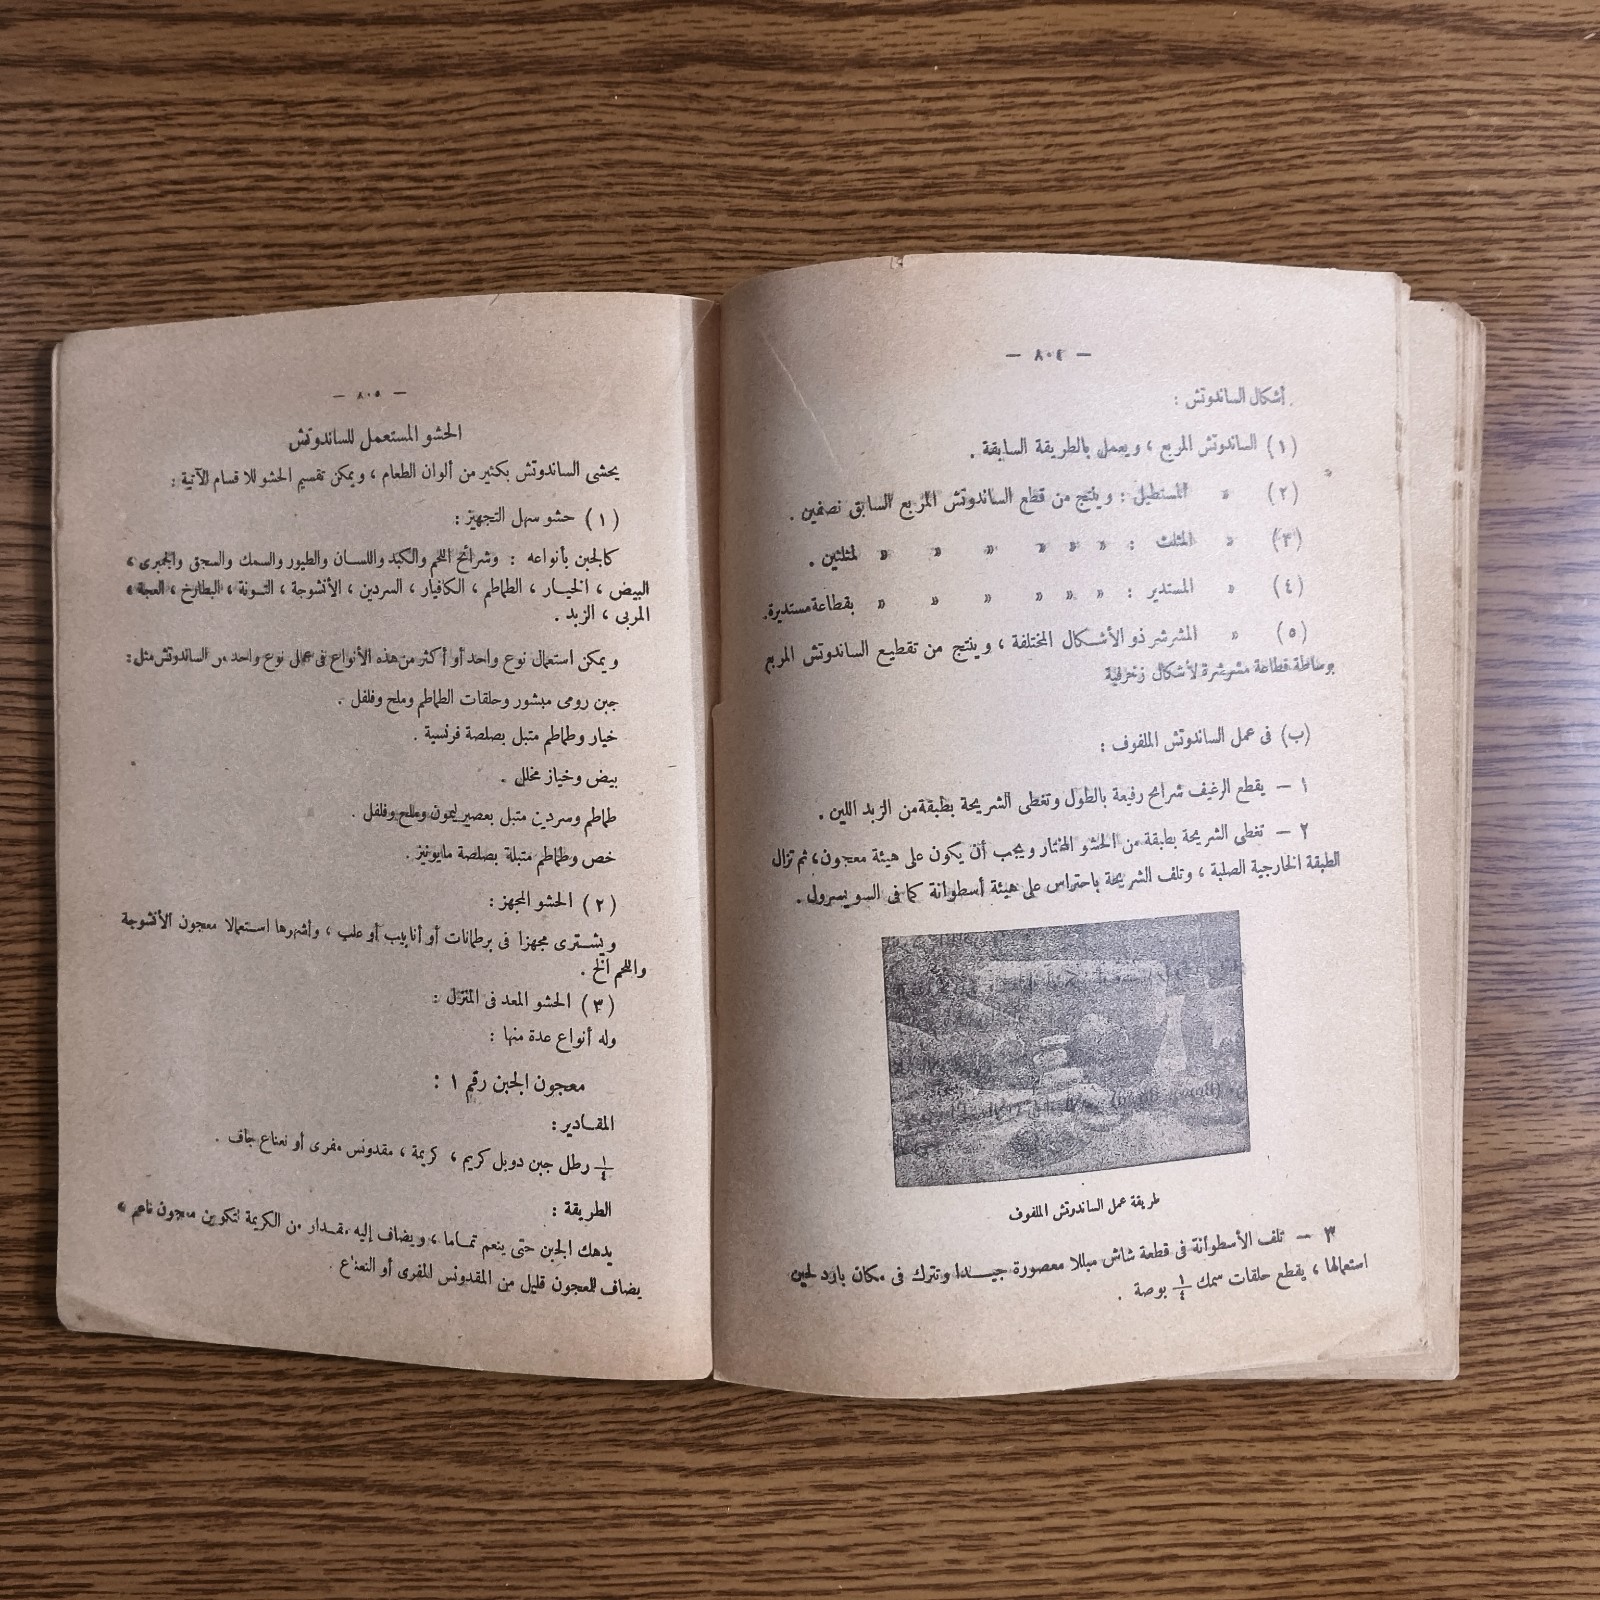 — ٨٠٤ —
أشكال الساندوتش :
(١) الساندوتش المربع ، ويعمل بالطريقة السابقة .
(٢) » المستطيل : وينتج من قطع الساندوتش المربع السابق نصفين .
(٣) » المثلث : » » » » » » لمثلثين .
(٤) » المستدير : » » » » » » بقطاعة مستديرة.
(٥) » المشرشر ذو الأشكال المختلفة ، وينتج من تقطيع الساندوتش المربع
بوساطة قطاعة مشرشرة لأشكال زخرفية
(ب) فى عمل الساندوتش الملفوف :
١ — يقطع الرغيف شرائح رفيعة بالطول وتغطى الشريحة بطبقة من الزبد اللين .
٢ — تغطى الشريحة بطبقة من الحشو المختار ويجب أن يكون على هيئة معجون، ثم تزال
الطبقة الخارجية الصلبة ، وتلف الشريحة باحتراس على هيئة أسطوانة كما فى السويسرول .
طريقة عمل الساندوتش الملفوف
٣ — تلف الأسطوانة فى قطعة شاش مبللا معصورة جيدا وتترك فى مكان بارد لحين
استعمالها ، يقطع حلقات سمك ١/٤ بوصة .
— ٨٠٥ —
الحشو المستعمل للساندوتش
يحشى الساندوتش بكثير من ألوان الطعام ، ويمكن تقسيم الحشو للأقسام الآتية :
(١) حشو سهل التجهيز :
كالجبن بأنواعه : وشرائح اللحم والكبد واللسان والطيور والسمك والسجق والجمبرى ،
البيض ، الخيار ، الطماطم ، الكافيار ، السردين ، الأنشوجة ، التونة ، البطارخ ، العجة ،
المربى ، الزبد .
ويمكن استعمال نوع واحد أو أكثر من هذه الأنواع فى عمل نوع واحد من الساندوتش مثل :
جبن رومى مبشور وحلقات الطماطم وملح وفلفل .
خيار وطماطم متبل بصلصة فرنسية .
بيض وخياز مخلل .
طماطم وسردين متبل بعصير ليمون وملح وفلفل .
خص وطماطم متبلة بصلصة مايونيز .
(٢) الحشو المجهز :
ويشترى مجهزا فى برطمانات أو أنابيب أو علب ، وأشهرها استعمالا معجون الأنشوجة
واللحم الخ .
(٣) الحشو المعد فى المنزل :
وله أنواع عدة منها :
معجون الجبن رقم ١ :
المقادير :
١/٤ رطل جبن دوبل كريم ، كريمة ، مقدونس مفرى أو نعناع جاف .
الطريقة :
يدهك الجبن حتى ينعم تماما ، ويضاف إليه مقدار من الكريمة لتكوين معجون ناعم ،
يضاف للمعجون قليل من المقدونس المفرى أو النعناع .